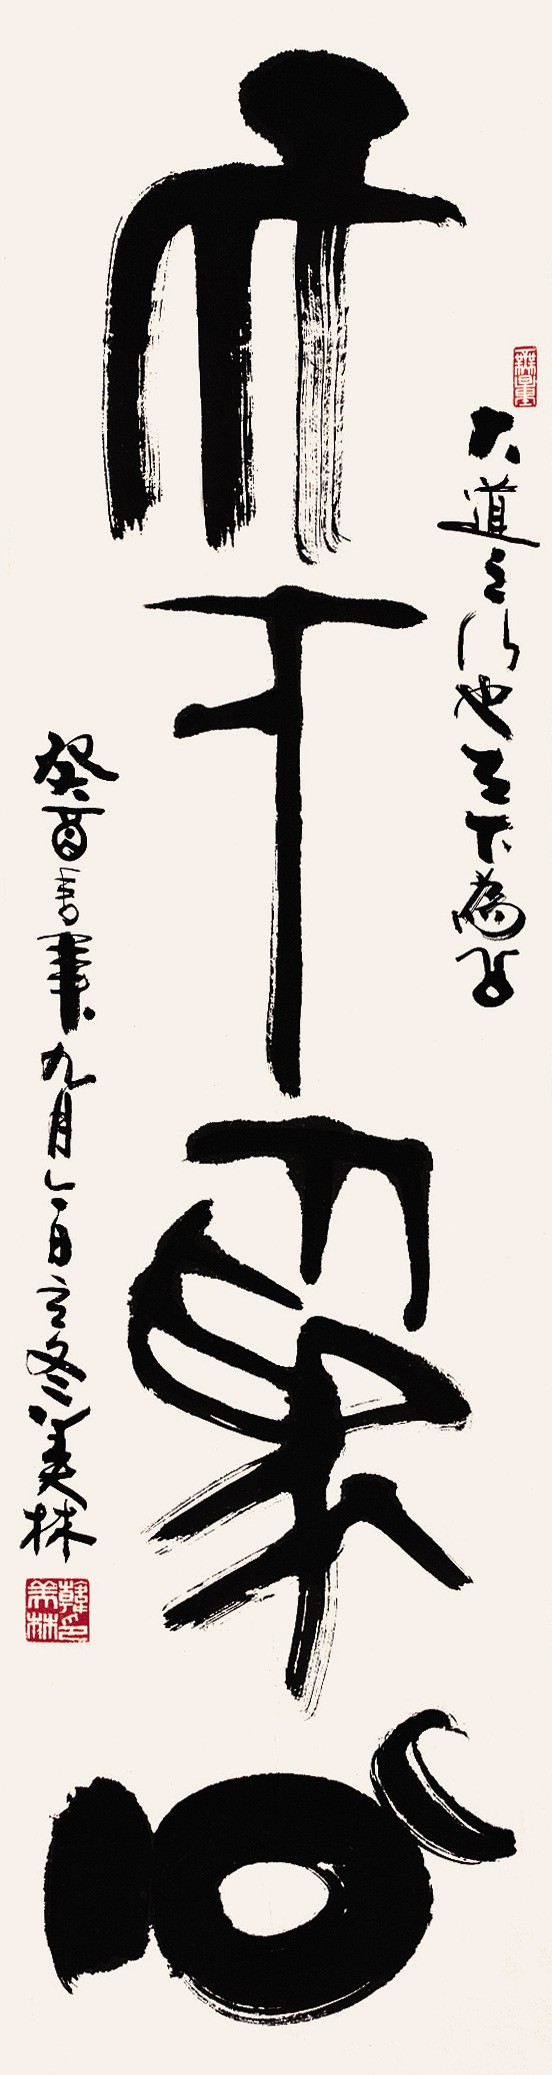 天下為公
大道之行也天下為公
癸酉書筆九月六日立冬美林
韓美林印